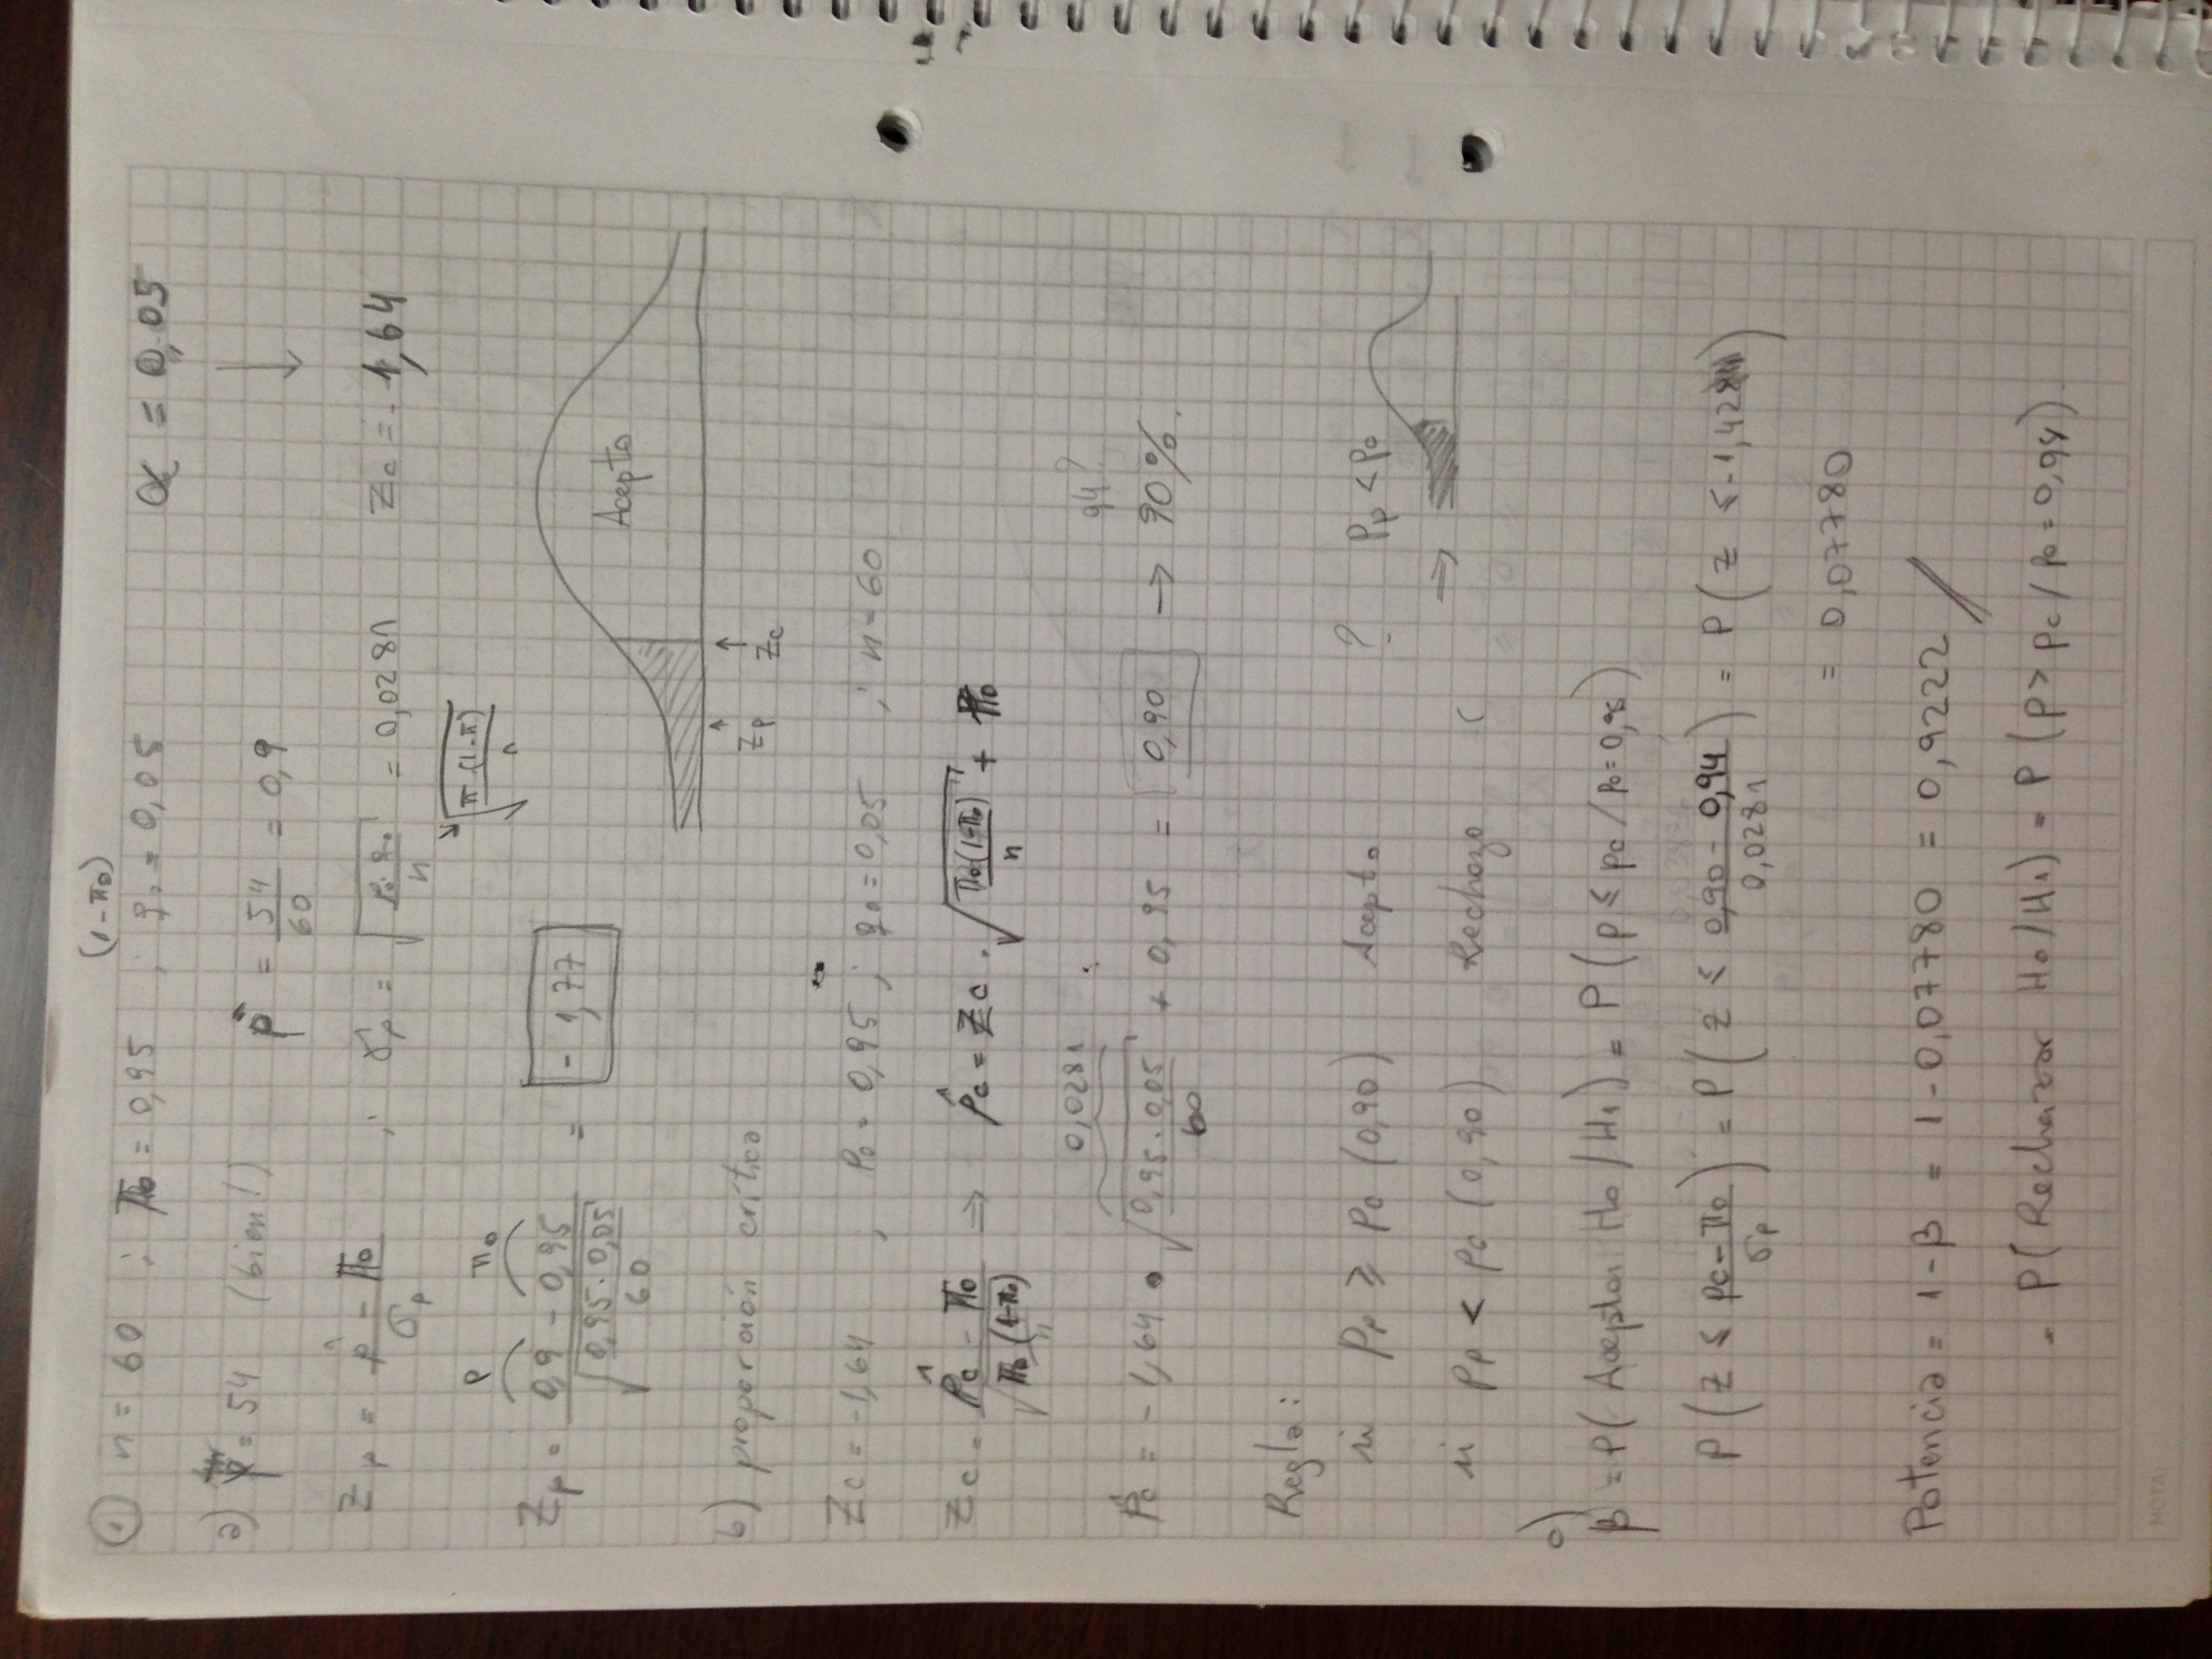 (1-π₀)
① n = 60 ; π₀ = 0,95 ; q₀ = 0,05 α = 0,05
a) = 54 (bien!) p̂ = 54/60 = 0,9
Zp = (p̂ - π₀)/σp ; σp = √(p₀·q₀/n) = 0,0281 Zc = -1,64
√(π·(1-π)/n)
p π₀
Zp = (0,9 - 0,95)/√(0,95·0,05/60) = -1,77
Acepto
Zp Zc
b) proporción crítica
Zc = -1,64 ; p₀ = 0,95 ; q₀ = 0,05 ; n = 60
Zc = (p̂c - π₀)/√(π₀(1-π₀)/n) ⇒ p̂c = Zc · √(π₀(1-π₀)/n) + π₀
0,0281 94?
p̂c = -1,64 · √(0,95·0,05/60) + 0,95 = 0,90 → 90%.
Regla:
si Pp ≥ pc (0,90) Acepto ? Pp < pc
si pp < pc (0,90) Rechazo ( ⇒
c)
β = P(Aceptar H₀/H₁) = P(p ≤ pc / p₀ = 0,95)
P(Z ≤ (pc - π₀)/σp) = P(Z ≤ (0,90 - 0,94)/0,0281) = P(Z ≤ -1,42)
= 0,07780
Potencia = 1-β = 1 - 0,07780 = 0,9222 /
= P(Rechazar H₀/H₁) = P(p > pc / p₀ = 0,94).
NOTA: